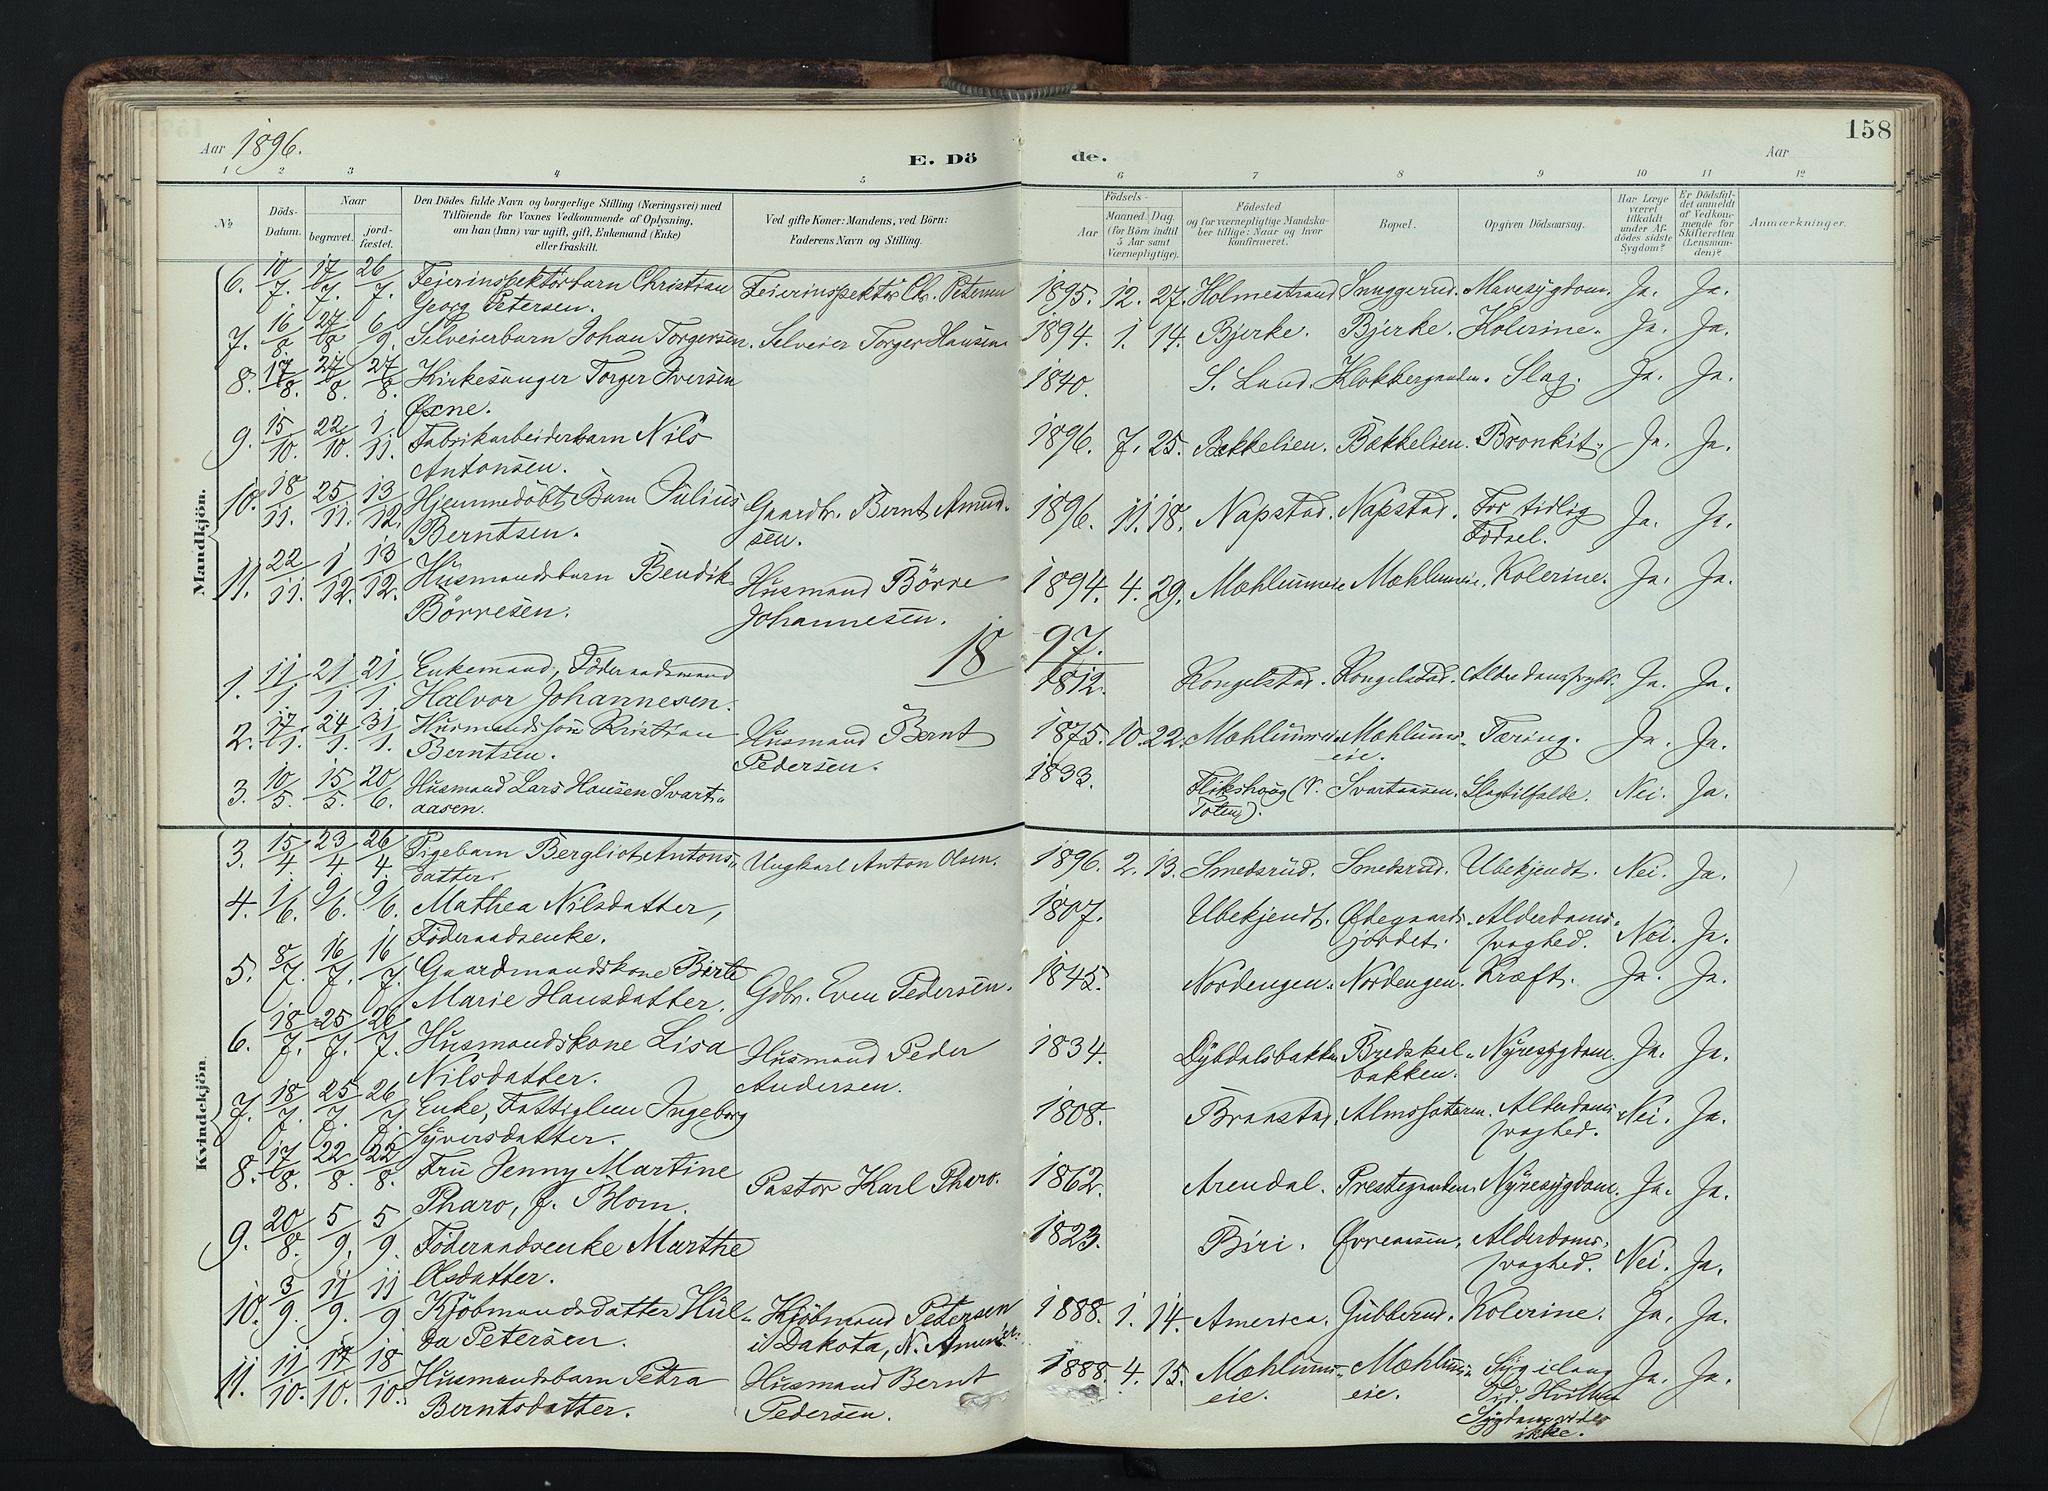 Aar 1896.
E. Dö
de.
Aar
158
1 2 3 4 5 6 7 8 9 10 11 12
No
Döds-
Datum.
Naar
begravet.
jord-
fæstet.
Den Dödes fulde Navn og borgerlige Stilling (Næringsvei) med
Tilföiende för Voxnes Vedkommende af Oplysning,
om han (hun) var ugift, gift, Enkemand (Enke)
eller fraskilt.
Ved gifte Koner: Mandens, ved Börn:
Faderens Navn og Stilling.
Födsels-
Aar
Maaned. Dag.
(for Börn indtil
5 Aar samt
Værnepligtige).
Födested
og for værnepligtige Mandska-
ber tillige: Naar og hvor
konfirmeret.
Bopæl.
Opgiven Dödsaarsag.
Har Læge
været
tilkaldt
under Af-
dödes sidste
Sygdom?
Er Dödsfal-
det anmeldt
af Vedkom-
mende for
Skifteretten
(Lensman-
den)?
Anmærkninger.
Mandkjön.
6. 10/7. 17/7. 26/7. Feierinspektörbarn Christian Feierinspektör Chr. Petersen 1895. 12. 27. Holmestrand Snuggerud. Mavesygdom. Ja. Ja.
Georg Petersen.
7. 16/8 27/8 6/9. Selveierbarn Johan Torgersen. Selveier Torger Hansen. 1894. 1. 14. Bjerke. Bjerke. Kolerine. Ja. Ja.
8. 17/8. 27/8. 27/8. Kirkesanger Torger Iversen 1840. S. Land. Klokkergaarden. Slag. Ja. Ja.
Øxne.
9. 15/10. 22/10. 1/11. Fabrikarbeiderbarn Nils 1896. 7. 25. Bækkelien. Bækkelien. Bronkit. Ja. Ja.
Antonsen.
10. 18/11. 25/11. 13/12. Hjemmedöbt Barn Julius Gaardbr. Bernt Amund- 1896. 11. 18. Napstad. Napstad. For tidlig Ja. Ja.
Berntsen. sen. Födsel.
11. 22/11. 1/12. 13/12. Husmandsbarn Bendik Husmand Börre 1894. 4. 29. Mæhlumeie Mæhlumeie. Kolerine. Ja. Ja.
Börresen. Johannesen.
18 97.
1. 11/1. 21/1. 21/1. Enkemand, Föderaadsmand 1812. Kongelstad. Kongelstad. Ja. Ja.
Halvor Johannesen.
2. 17/1. 24/1. 31/1. Husmandssön Kristian Husmand Bernt 1875. 10. 22. Mæhlumeie Mæhlums- Tæring. Ja. Ja.
Berntsen. Pedersen. eie.
3. 10/5. 15/5. 20/6. Husmand Lars Hansen Svart- 1833. Flikshaug (V. Svartaasen. Slagtilfælde. Nei. Ja.
aasen. Toten).
Kvindekjön.
3. 15/4. 23/4 26/4 Pigebarn Bergliot Antons- Ungkarl Anton Olsen. 1896. 2. 13. Smedsrud. Smedsrud. Ubekjendt. Nei. Ja.
datter.
4. 1/6. 9/6. 9/6. Mathea Nilsdatter, 1807. Ubekjendt. Ødegaards- Alderdoms- Nei. Ja.
Föderaadsenke. jordet. svaghed.
5. 8/7. 16/7. 16/7. Gaardmandskone Birte Gdbr. Even Pedersen. 1845. Nordengen. Nordengen. Kræft. Ja. Ja.
Marie Hansdatter.
6. 18/7. 25/7. 26/7. Husmandskone Lisa Husmand Peder 1834. Dybdalsbakken Bredskal- Nyresygdom. Ja. Ja.
Nilsdatter. Andersen. bakken.
7. 18/7. 25/7. 26/7. Enke, Fattiglem Ingeborg 1808. Braastad. Alderdoms- Nei. Ja.
Syversdatter. svaghed.
8. 17/8. 22/8. 22/8. Fru Jenny Martine Pastor Karl Pharo. 1862. Arendal. Prestegaarden. Nyresygdom. Ja. Ja.
Pharo, f. Blom.
9. 20/8. 5/9. 5/9. Föderaadsenke Marthe 1823. Biri. Øvreaasen. Alderdoms- Nei. Ja.
Olsdatter. svaghed.
10. 3/9. 11/9. 11/9. Kjöbmandsdatter Hul- Kjöbmand Petersen 1888. 1. 14. America. Gubberud. Kolerine. Ja. Ja.
da Petersen. i Dakota, N. Amerika.
11. 11/10. 17/10. 18/10. Husmandsbarn Petra Husmand Bernt 1888. 4. 15. Mæhlums- Mæhlums- Syg i lang Ja. Ja.
Berntsdatter. Pedersen. eie. eie. Tid. Hvilken
Sygdom vides
ikke.